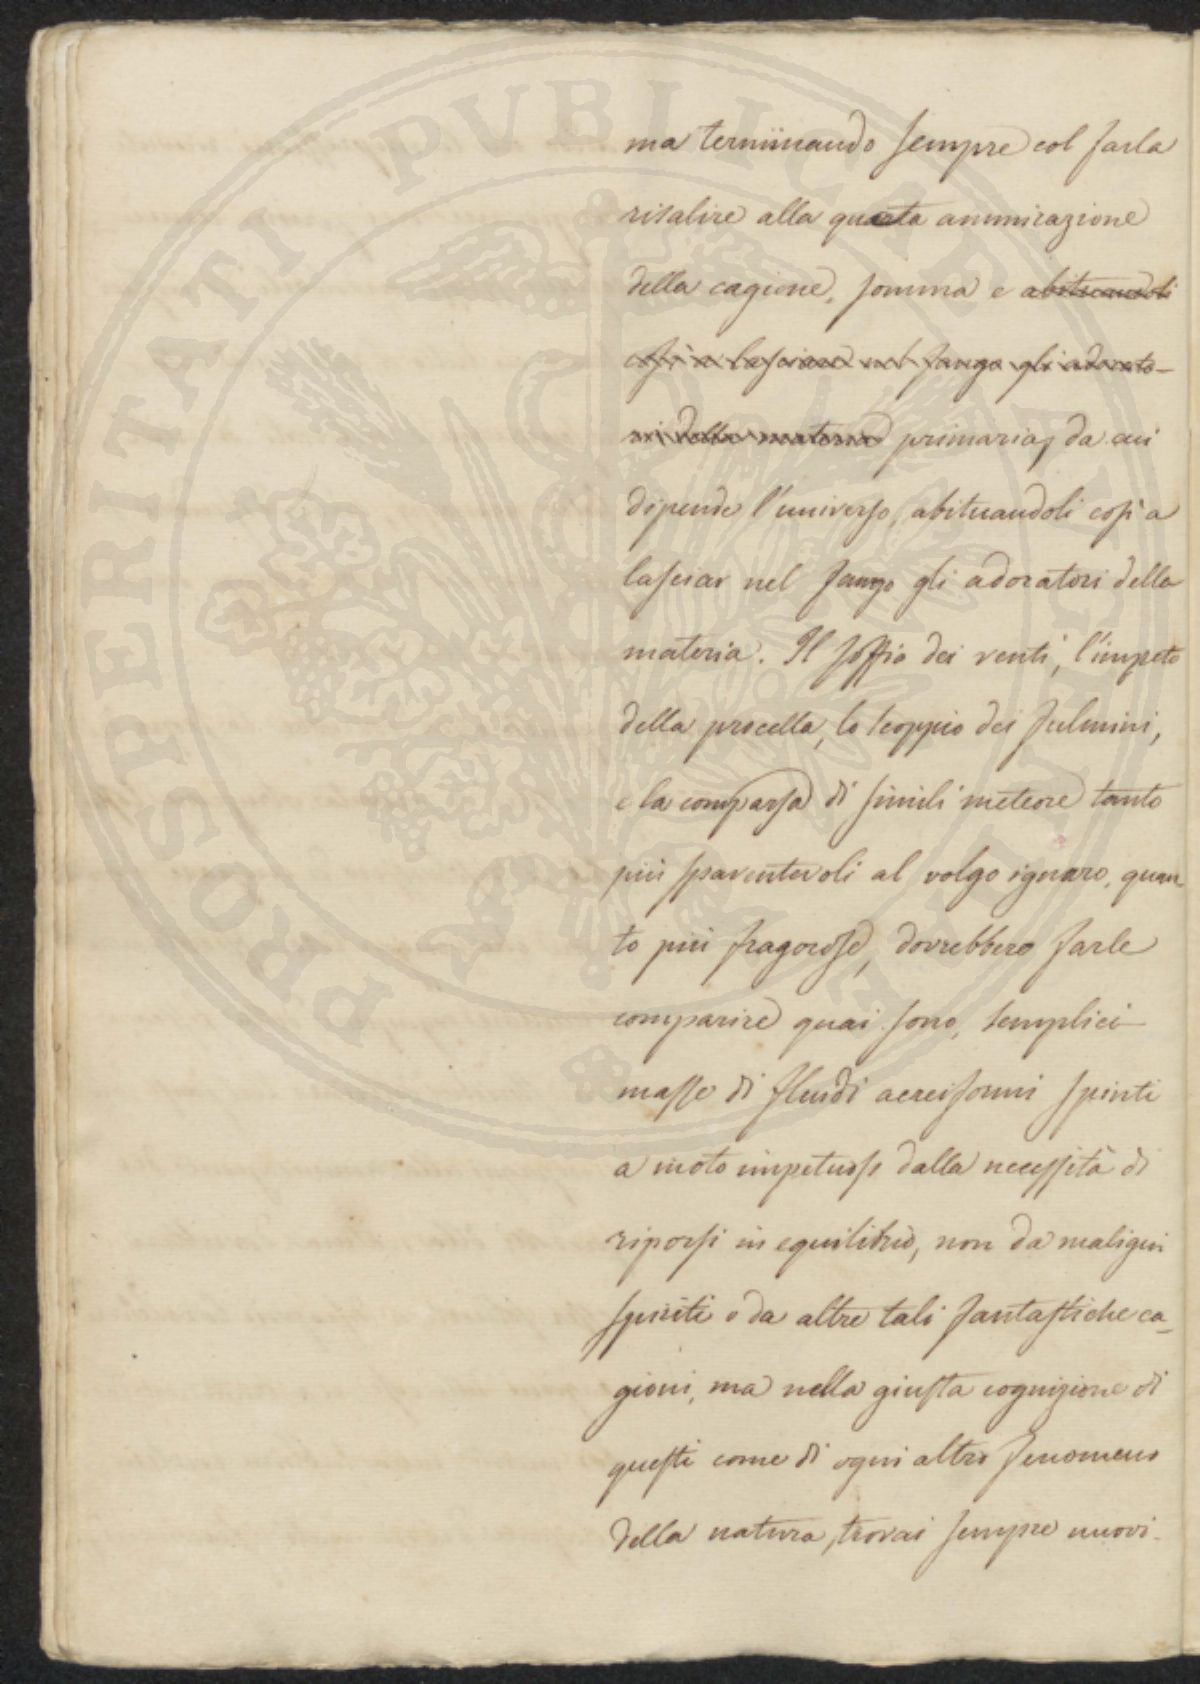 ma terminando sempre col farla
risalire alla giusta ammirazione
della cagione, somma e abituandoli
così a lasciare nel fango gli adorato-
ri della materia primaria, da cui
dipende l'universo, abituandoli così a
lasciar nel fango gli adoratori della
materia. Il soffio dei venti, l'impeto
della procella, lo scoppio dei fulmini,
e la comparsa di simili meteore tanto
più spaventevoli al volgo ignaro, quan-
to più fragorose, dovrebbero farle
comparire quai sono, semplici
masse di fluidi aereiformi spinti
a moto impetuoso dalla necessità di
riporsi in equilibrio, non da maligni
spiriti o da altre tali fantastiche ca-
gioni, ma nella giusta cognizione di
questi come di ogni altro fenomeno
della natura, trovai sempre nuovi
PROSPERITATI PVBLICAE AVGENDAE